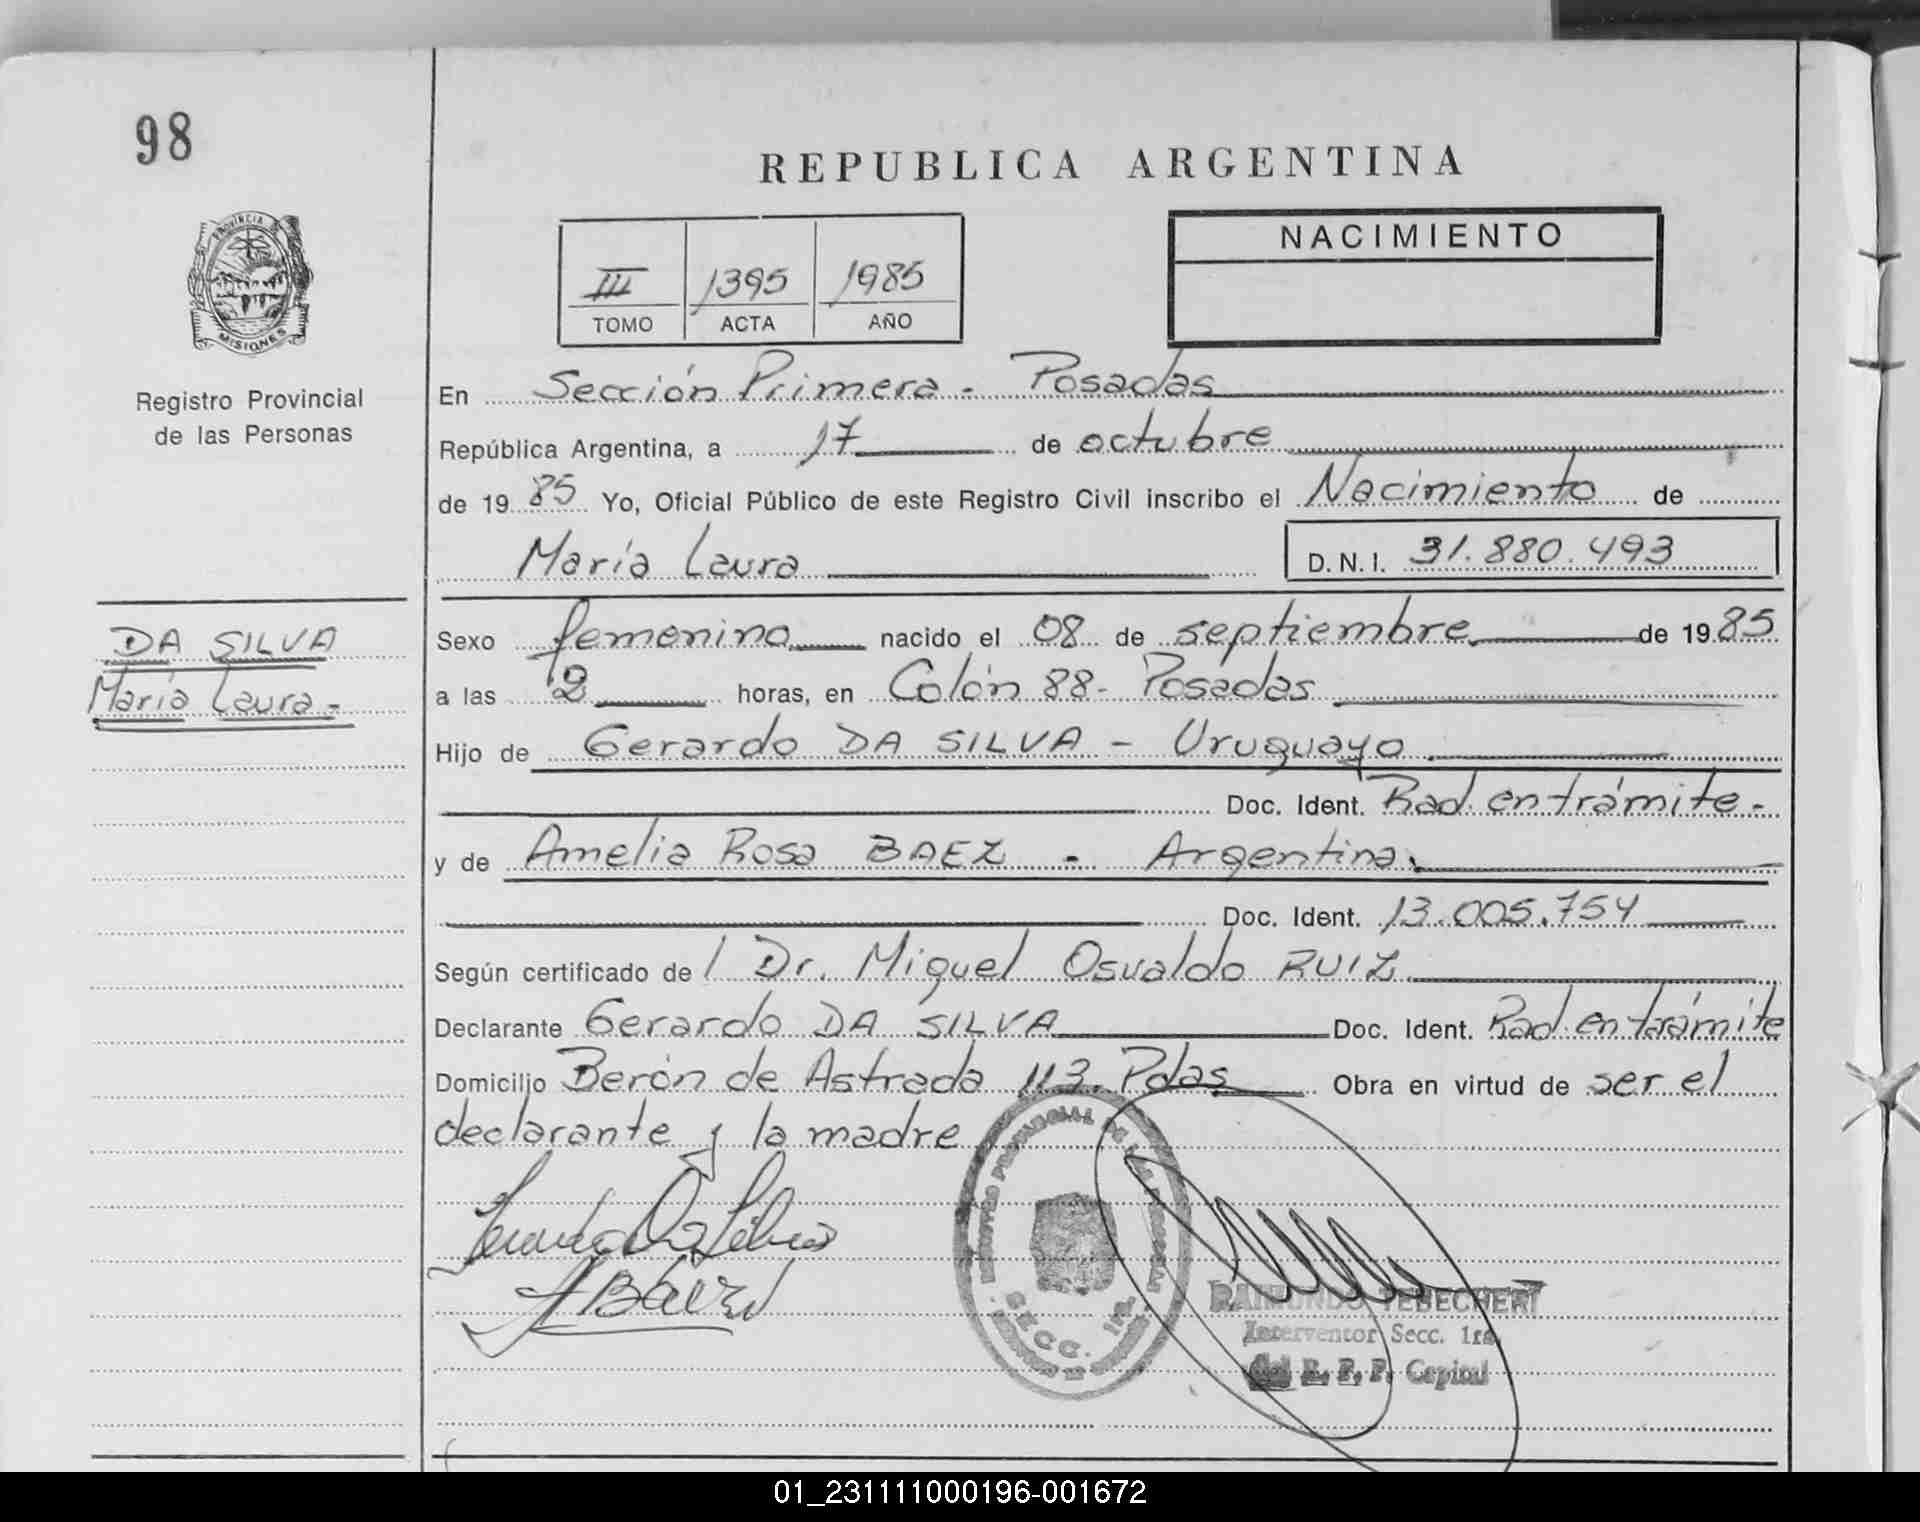 98
REPUBLICA ARGENTINA
PROVINCIA
MISIONES
Registro Provincial
de las Personas
III 1395 1985
TOMO ACTA AÑO
NACIMIENTO
En Sección Primera - Posadas
República Argentina, a 17 de octubre
de 19 85 Yo, Oficial Público de este Registro Civil inscribo el Nacimiento de
María Laura D. N. I. 31.880.493
DA SILVA
María Laura -
Sexo femenino nacido el 08 de septiembre de 19 85
a las 2 horas, en Colón 88 - Posadas
Hijo de Gerardo DA SILVA - Uruguayo
Doc. Ident. Rad. en trámite -
y de Amelia Rosa BAEZ - Argentina.
Doc. Ident. 13.005.754
Según certificado de / Dr. Miguel Osvaldo RUIZ
Declarante Gerardo DA SILVA Doc. Ident. Rad. en trámite
Domicilio Berón de Astrada 113. Pdas Obra en virtud de ser el
declarante y la madre
Da Silva
ABáez
SECC. 1ra.
RAIMUNDO TEBECHERI
Interventor Secc. 1ra.
del R. P. P. Capital
01_231111000196-001672